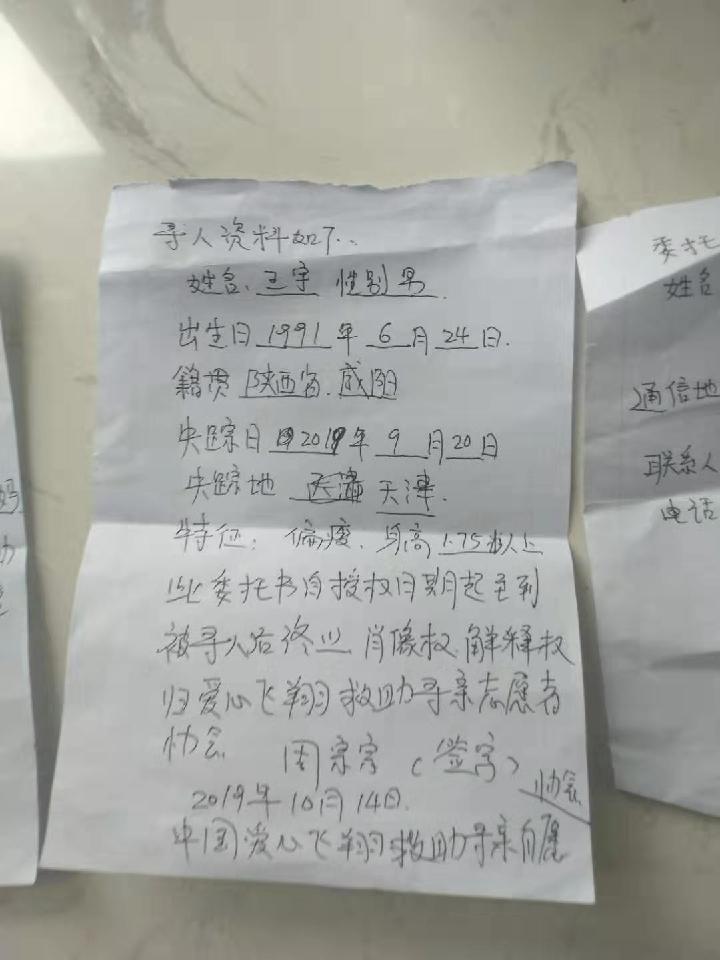 寻人资料如下:
姓名、王宇 性别 男.
出生日 1991 年 6 月 24 日.
籍贯 陕西省. 咸阳
失踪日 2019 年 9 月 20 日
失踪地 天津.
特征: 偏瘦、身高 1.75米以上
此委托书自授权日期起至到
被寻人后终止 肖像权 解释权
归爱心飞翔救助寻亲志愿者
协会 周宗宗 (签字)
2019年10月14日. 协会
中国爱心飞翔救助寻亲自愿
委托
姓名
通信地
联系人
电话
妈